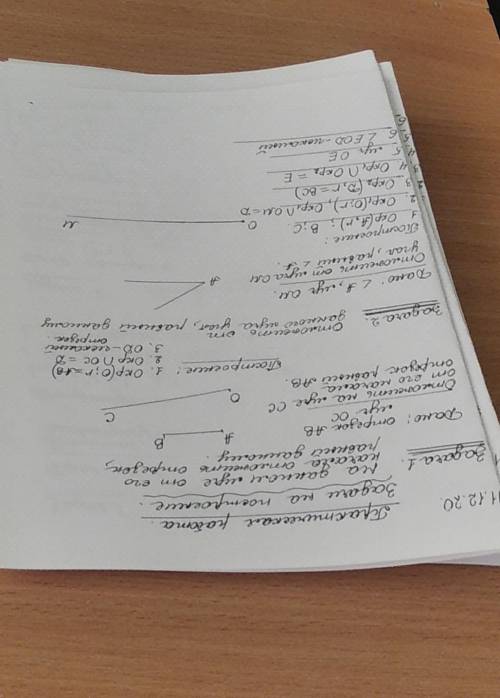 11.12.20.
Практическая работа.
Задачи на построение.
Задача 1.
На данном луче от его
начала отложить отрезок,
равный данному.
Дано: отрезок AB
луч OC
Отложить на луче OC
от его начала
отрезок равный AB.
A B
O C
Построение: 1. Окр(O; r=AB)
2. Окр ∩ OC = D
3. OD-искомый
отрезок
Задача 2.
Отложить от
данного луча угол, равный данному
Дано: ∠A, луч OM.
Отложить от луча OM
угол, равный ∠A.
A
O M
Построение:
1. Окр(A, r); B; C.
2. Окр₁(O; r), Окр₁∩OM=D
3. Окр₂(D, r=BC)
4. Окр₁ ∩ Окр₂ = E
5. луч OE
6. ∠EOD-искомый